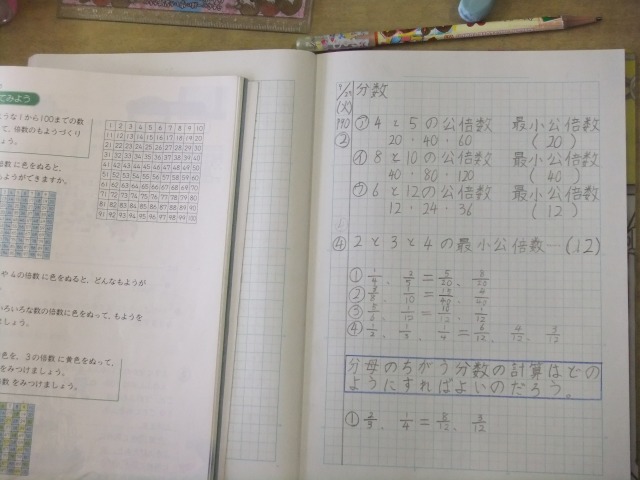 てみよう
ような1から100までの数
て、倍数のもようづくり
しょう。
倍数 に色をぬると、
もようができますか。
1 2 3 4 5 6 7 8 9 10
11 12 13 14 15 16 17 18 19 20
21 22 23 24 25 26 27 28 29 30
31 32 33 34 35 36 37 38 39 40
41 42 43 44 45 46 47 48 49 50
51 52 53 54 55 56 57 58 59 60
61 62 63 64 65 66 67 68 69 70
71 72 73 74 75 76 77 78 79 80
81 82 83 84 85 86 87 88 89 90
91 92 93 94 95 96 97 98 99 100
や 4の倍数 に色をぬると、どんなもようが
いろいろな数の倍数に色をぬって、もようを
ましょう。
色を、3の倍数 に黄色をぬって、
をみつけましょう。
倍数 をみつけましょう。
分数
(火)
P90
②
㋐ 4と5の公倍数 最小公倍数
20・40・60 (20)
㋑ 8と10の公倍数 最小公倍数
40・80・120 (40)
㋒ 6と12の公倍数 最小公倍数
12・24・36 (12)
④ 2と3と4の最小公倍数…(12)
① 1/4、2/5 = 5/20、8/20
②
③
④ 1/2、1/3、1/4 = 6/12、4/12、3/12
分母のちがう分数の計算はどの
ようにすればよいのだろう。
① 2/3、1/4 = 8/12、3/12